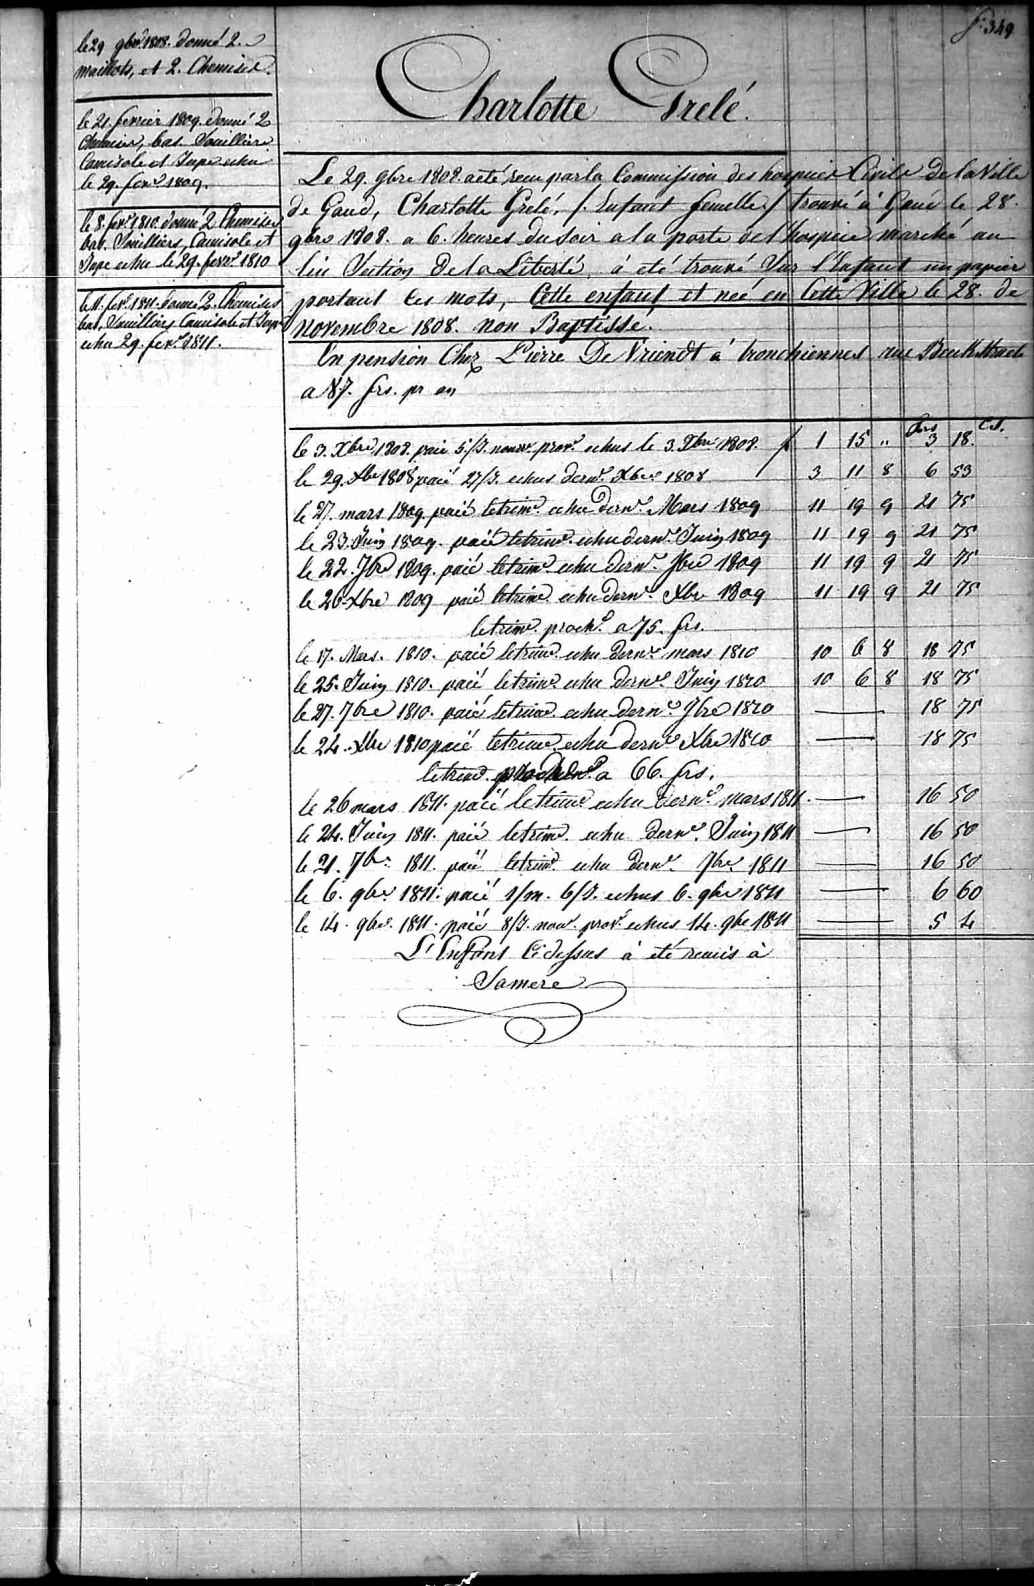 f° 349
le 29 gbre 1808. donné 2.
maillots, et 2. Chemises.
le 21. fevrier 1809. donné 2
Chemises, bas. Souilliers
Camisole et Jupe echu
le 29. fevr 1809.
le 8. fevr 1810. donné 2 Chemises
bas, Souilliers, Camisole et
Jupe echu le 29. fevr 1810
le 11. fevr 1811. donné 2. Chemises
bas, Souilliers Camisole et Jupe
echu 29. fevr 1811.
Charlotte Grelé.
Le 29. gbre 1808. a eté recu par la Commission des hospices Civils de la Ville
de Gand, Charlotte Grelé, /. Enfant femelle ./ trouvé à Gand le 28.
gbre 1808. a 6. heures du soir a la porte de l'hospice marché au
lin Section de la Liberté, à eté trouvé sur l'Enfant un papier
portant les mots, Cette enfant et neé en Cette Ville le 28. de
novembre 1808. non Baptisse.
En pension Chez Pierre De Vriendt à tronchiennes rue
a 87. frs. pr an
frs cs.
le 3. Xbre 1808. paié 5/J. nourr. provre echus le 3. Xbre 1808. f 1 15 " 3 18.
le 29. Xbre 1808 paié 27/J. echus dernr Xbre 1808 3 11 8 6 53
le 27. mars 1809. paié le trime echu dernr Mars 1809 11 19 9 21 75
le 23. Juin 1809. paié le trime echu dernr Juin 1809 11 19 9 21 75
le 22. 7bre 1809. paié le trime echu dernr 7bre 1809 11 19 9 21 75
le 26 Xbre 1809 paié le trime echu dernr Xbre 1809 11 19 9 21 75
le trime prochn a 75. frs.
le 17. Mars. 1810. paié le trime echu dernr mars 1810 10 6 8 18 75
le 25. Juin 1810. paié le trime echu dernr Juin 1810 10 6 8 18 75
le 27. 7bre 1810. paié le trime echu dernr 7bre 1810 18 75
le 24. Xbre 1810 paié le trime echu dernr Xbre 1810 18 75
le trime prochn a 66. frs.
le 26 mars 1811. paié le trime echu dernr mars 1811. 16 50
le 24. Juin 1811. paié le trime echu dernr Juin 1811 16 50
le 21. 7bre 1811. paié le trime echu dernr 7bre 1811 16 50
le 6. gbre 1811. paié 1/m. 6/J. echus 6. gbre 1811 6 60
le 14. gbre 1811. paié 8/J. nour. provre echus 14. gbre 1811 5 4
L'Enfant Cidessus à été remis à
Samere